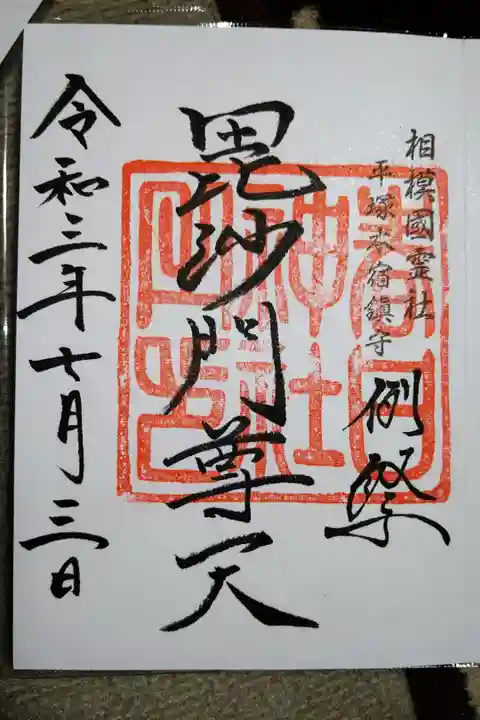 相模國霊社
平塚本宿鎮守
例祭
毘沙門尊天
春日神社
令和三年七月三日